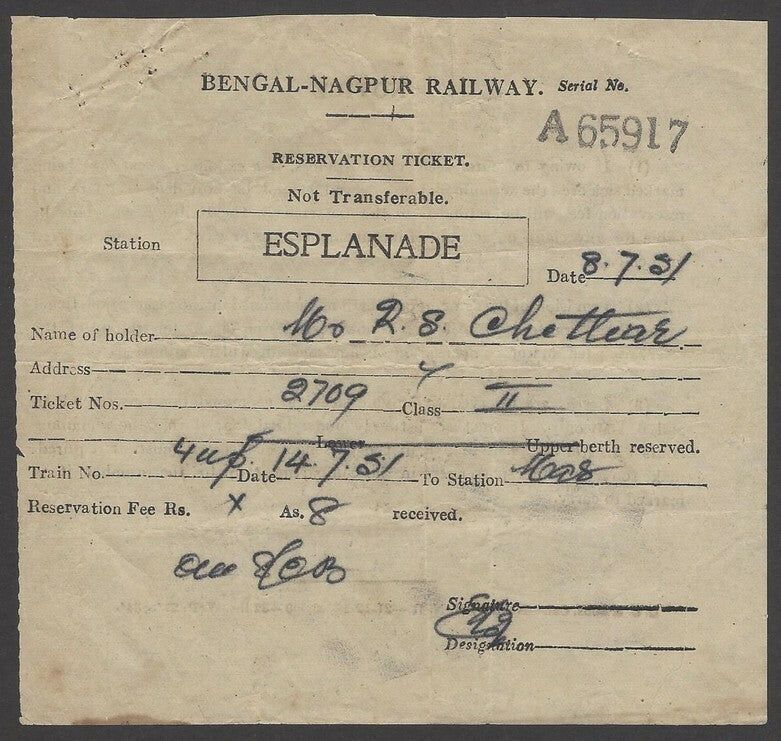 BENGAL-NAGPUR RAILWAY. Serial No.
A 65917
RESERVATION TICKET.
Not Transferable.
Station ESPLANADE
Date 8.7.51
Name of holder Mr R. S. Chettiar
Address
Ticket Nos. 2709 Class II
Lower Upper berth reserved.
Train No. 4 up Date 14.7.51 To Station Mas
Reservation Fee Rs. X As. 8 received.
Signature
Designation